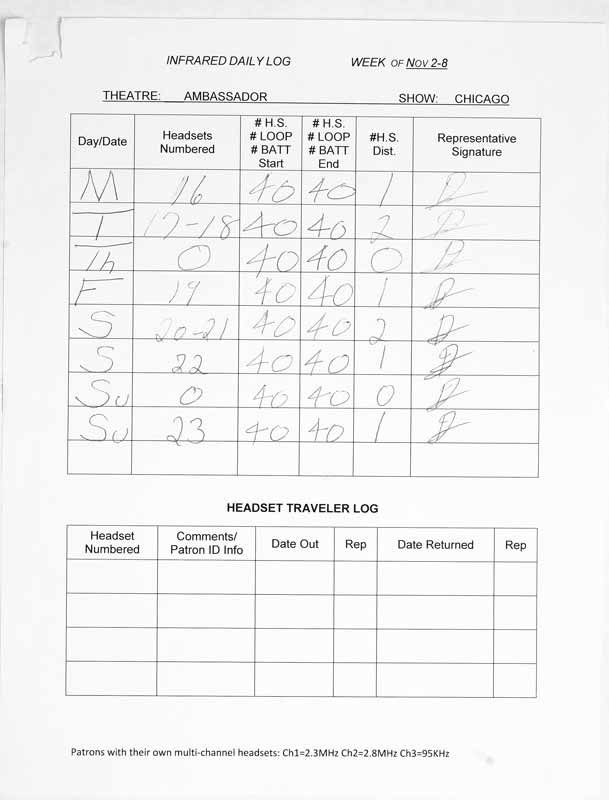 INFRARED DAILY LOG WEEK OF NOV 2-8
THEATRE: AMBASSADOR SHOW: CHICAGO
Day/Date Headsets Numbered # H.S. # LOOP # BATT Start # H.S. # LOOP # BATT End #H.S. Dist. Representative Signature
M 16 40 40 1
T 17-18 40 40 2
Th 0 40 40 0
F 19 40 40 1
S 20-21 40 40 2
S 22 40 40 1
Su 0 40 40 0
Su 23 40 40 1
HEADSET TRAVELER LOG
Headset Numbered Comments/ Patron ID Info Date Out Rep Date Returned Rep
Patrons with their own multi-channel headsets: Ch1=2.3MHz Ch2=2.8MHz Ch3=95KHz